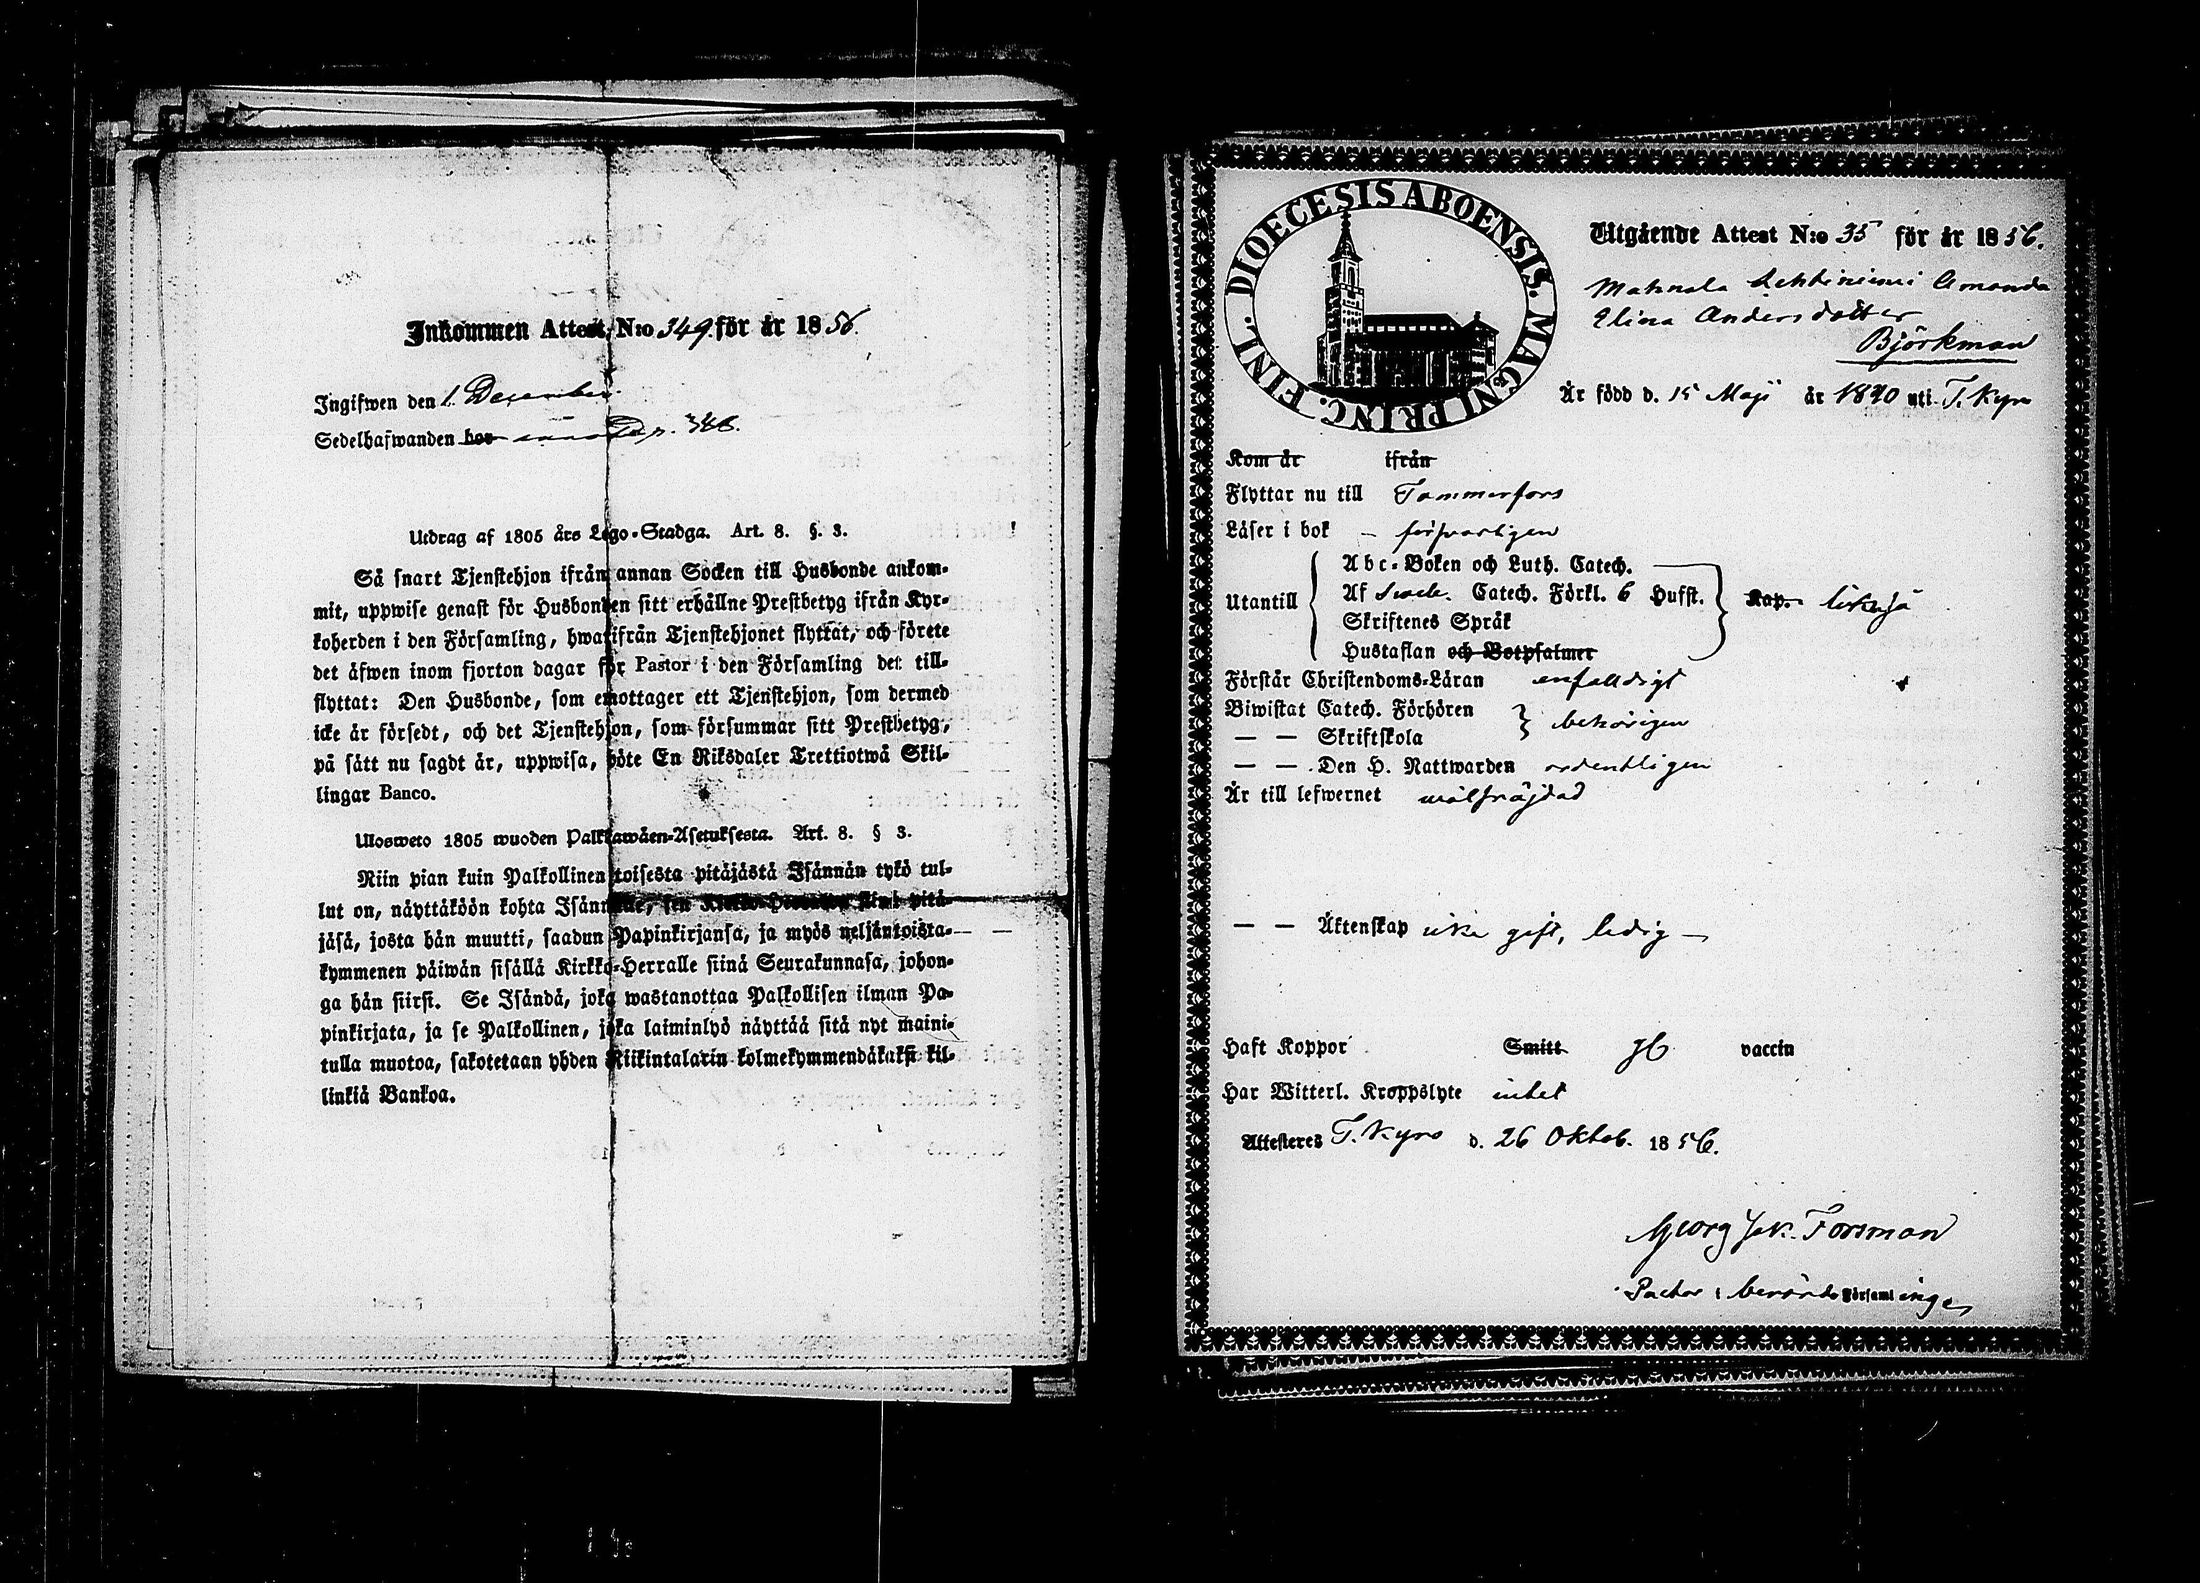 Inkommen Attest, N:o 349. för år 1856.
Ingifwen den 1 December.
Sedelhafwanden bor p. 346.
Utdrag af 1805 års Lego-Stadga. Art. 8. §. 3.
Så snart Tjenstehjon ifrån annan Socken till Husbonde ankom-
mit, uppwise genast för Husbonden sitt erhållne Prestbetyg ifrån Kyr-
koherden i den Församling, hwarifrån Tjenstehjonet flyttat, och förete
det äfwen inom fjorton dagar för Pastor i den Församling det till-
flyttat: Den Husbonde, som emottager ett Tjenstehjon, som dermed
icke är försedt, och det Tjenstehjon, som försummar sitt Prestbetyg,
på sätt nu sagdt är, uppwisa, böte En Riksdaler Trettiotwå Skil-
lingar Banco.
Ulosweto 1805 wuoden Palkkawäen-Asetuksesta. Art. 8. § 3.
Niin pian kuin Palkollinen toisesta pitäjästä Isännän tykö tul-
lut on, näyttäköön kohta Isännälle, sen Kirkko-Herralta siinä pitä-
jäsä, josta hän muutti, saadun Papinkirjansa, ja myös neljäntoista-
kymmenen päiwän sisällä Kirkko-Herralle siinä Seurakunnasa, johon-
ga hän siirsi. Se Isändä, joka wastanottaa Palkollisen ilman Pa-
pinkirjata, ja se Palkollinen, joka laiminlyö näyttää sitä nyt maini-
tulla muotoa, sakotetaan yhden Riikintalarin kolmekymmendäkaksi kil-
linkiä Bankoa.
DIOECESIS ABOENSIS. MAGNI PRINC. FINL.
Utgående Attest N:o 35 för år 1856.
Mahnala Lehtiniemi Amanda
Elina Andersdotter
Björkman
Är född d. 15 Maji år 1840 uti T. Kyro
Kom år ifrån
Flyttar nu till Tammerfors
Läser i bok – försvarligen
Utantill
Abc-Boken och Luth. Catech.
Af Sveb. Catech. Förkl. 6 Hufst. Kap. likaså
Skriftenes Språk
Hustaflan och Botpsalmer
Förstår Christendoms-Läran enfaldigt
Biwistat Catech. Förhören
— — Skriftskola behörigen
— — Den H. Nattwarden ordentligen
Är till lefwernet wälfräjdad
— — Äktenskap icke gift, ledig —
Haft Koppor Smitt gl vaccin
Har Witterl. Kroppslyte intet
Attesteres T. Kyro d. 26 Oktob. 1856.
Georg Jak. Forsman
Pastor i berörde Församlingen